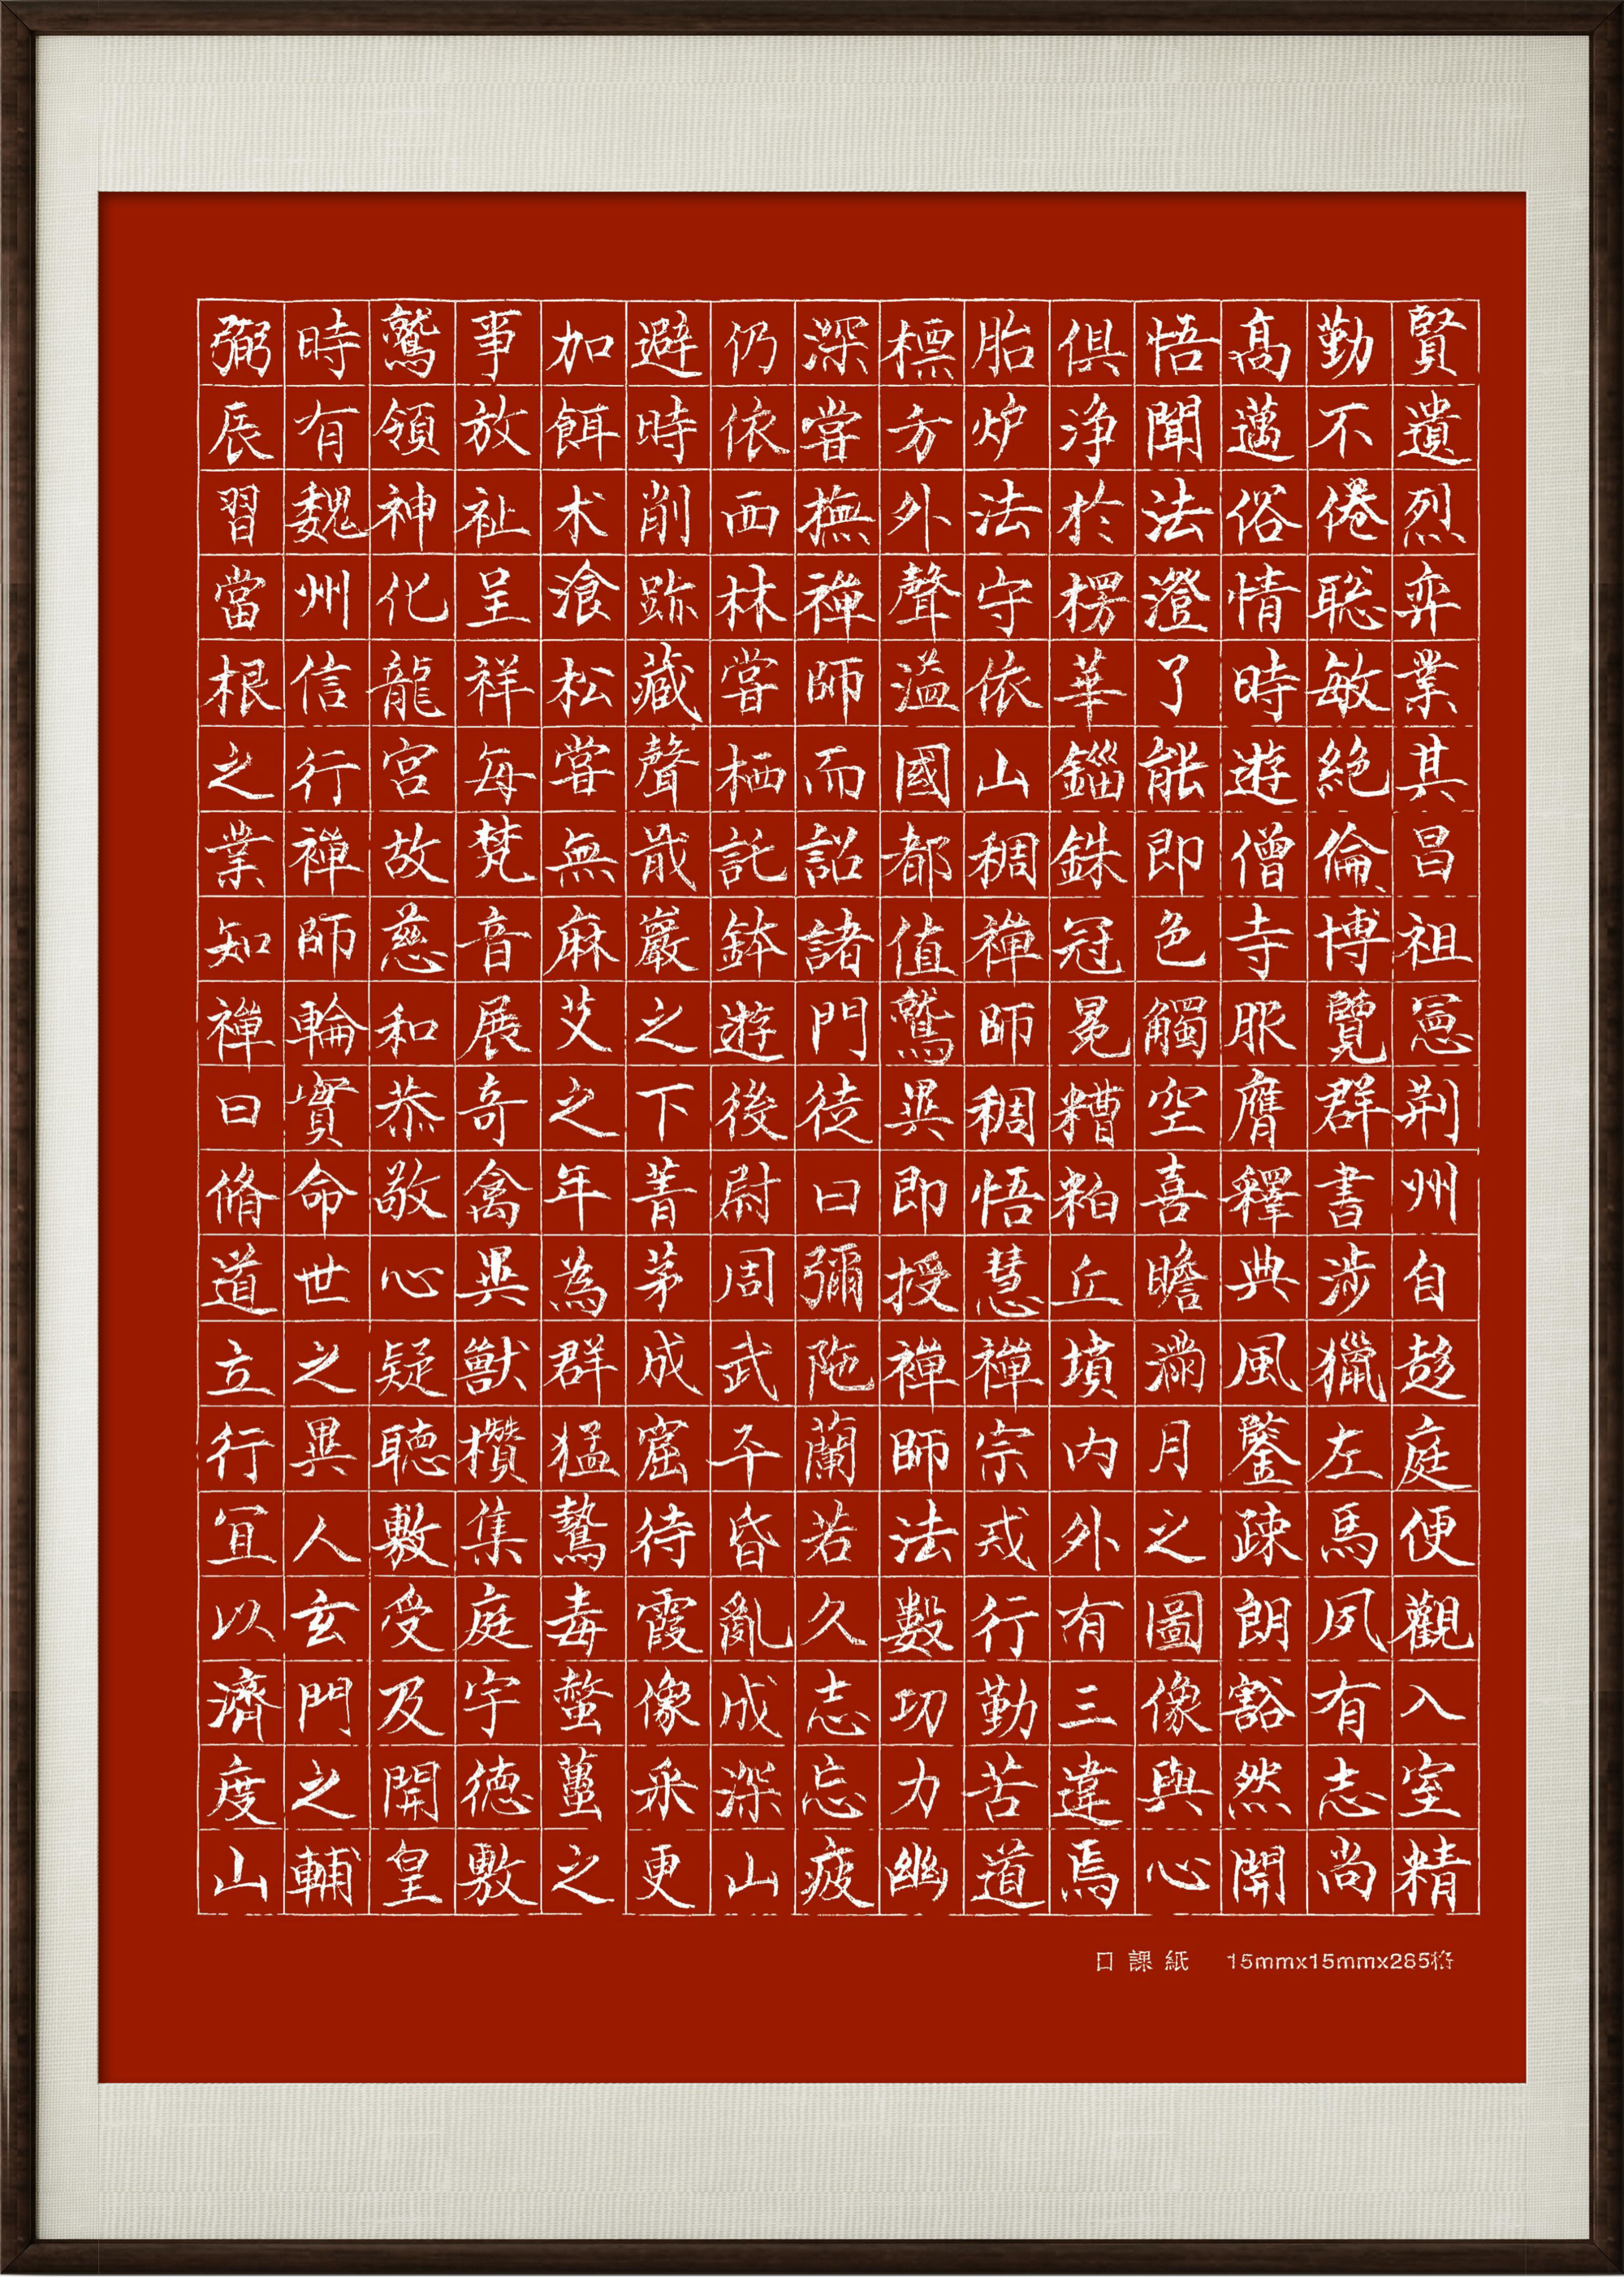 賢遺烈弈業其昌祖愻荆州自趍庭便觀入室精
勤不倦聡敏絶倫博覽群書涉獵左馬夙有志尚
髙邁俗情時遊僧寺服膺釋典風鑒疎朗豁然開
悟聞法澄了能即色觸空喜瞻滿月之圖像與心
俱淨於楞華錙銖冠冕糟粕丘墳内外有三違焉
胎炉法守依山稠禪師稠悟慧禪宗戒行勤苦道
標方外聲溢國都值鷲異即授禪師法數功力幽
深嘗撫禪師而詔諸門徒曰彌陁蘭若久志忘疲
仍依西林嘗栖託鉢遊後尉周武平昏亂成深山
避時削跡藏聲戢巖之下菁茅成窟待霞像采更
加餌术飡松嘗無麻艾之年為群猛鷙毒螫蠆之
事放祉呈祥每梵音展奇禽異獸欑集庭宇德敷
鷲領神化龍宮故慈和恭敬心疑聽敷受及開皇
時有魏州信行禪師輪實命世之異人玄門之輔
弼辰習當根之業知禪曰脩道立行冝以濟度山
日課紙 15mmx15mmx285格